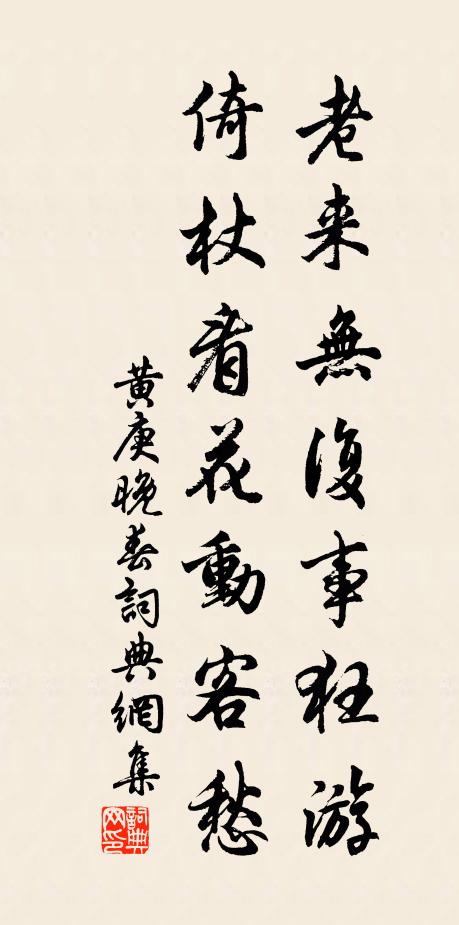 老来無復事狂游
倚杖看花動客愁
黄庚晚春詞典網集
詞典網印